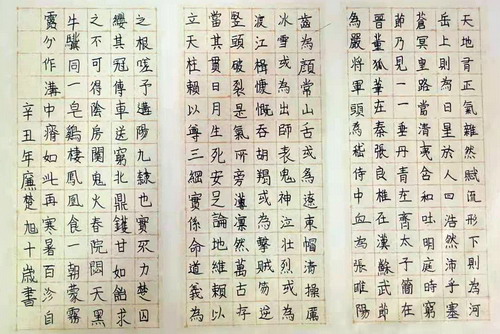 天地有正氣雜然賦流形下則為河
岳上則為日星於人曰浩然沛乎塞
蒼冥皇路當清夷含和吐明庭時窮
節乃見一一垂丹青在齊太子簡在
晉董狐筆在秦張良椎在漢蘇武節
為嚴將軍頭為嵇侍中血為張睢陽
齒為顏常山舌或為遼東帽清操厲
冰雪或為出師表鬼神泣壯烈或為
渡江楫慷慨吞胡羯或為擊賊笏逆
豎頭破裂是氣所旁薄凜然萬古存
當其貫日月生死安足論地維賴以
立天柱賴以尊三綱實係命道義為
之根嗟予遘陽九隸也實不力楚囚
纓其冠傳車送窮北鼎鑊甘如飴求
之不可得陰房闃鬼火春院閟天黑
牛驥同一皂鷄棲鳳凰食一朝蒙霧
露分作溝中瘠如此再寒暑百沴自
辛丑年廉楚旭十歲書